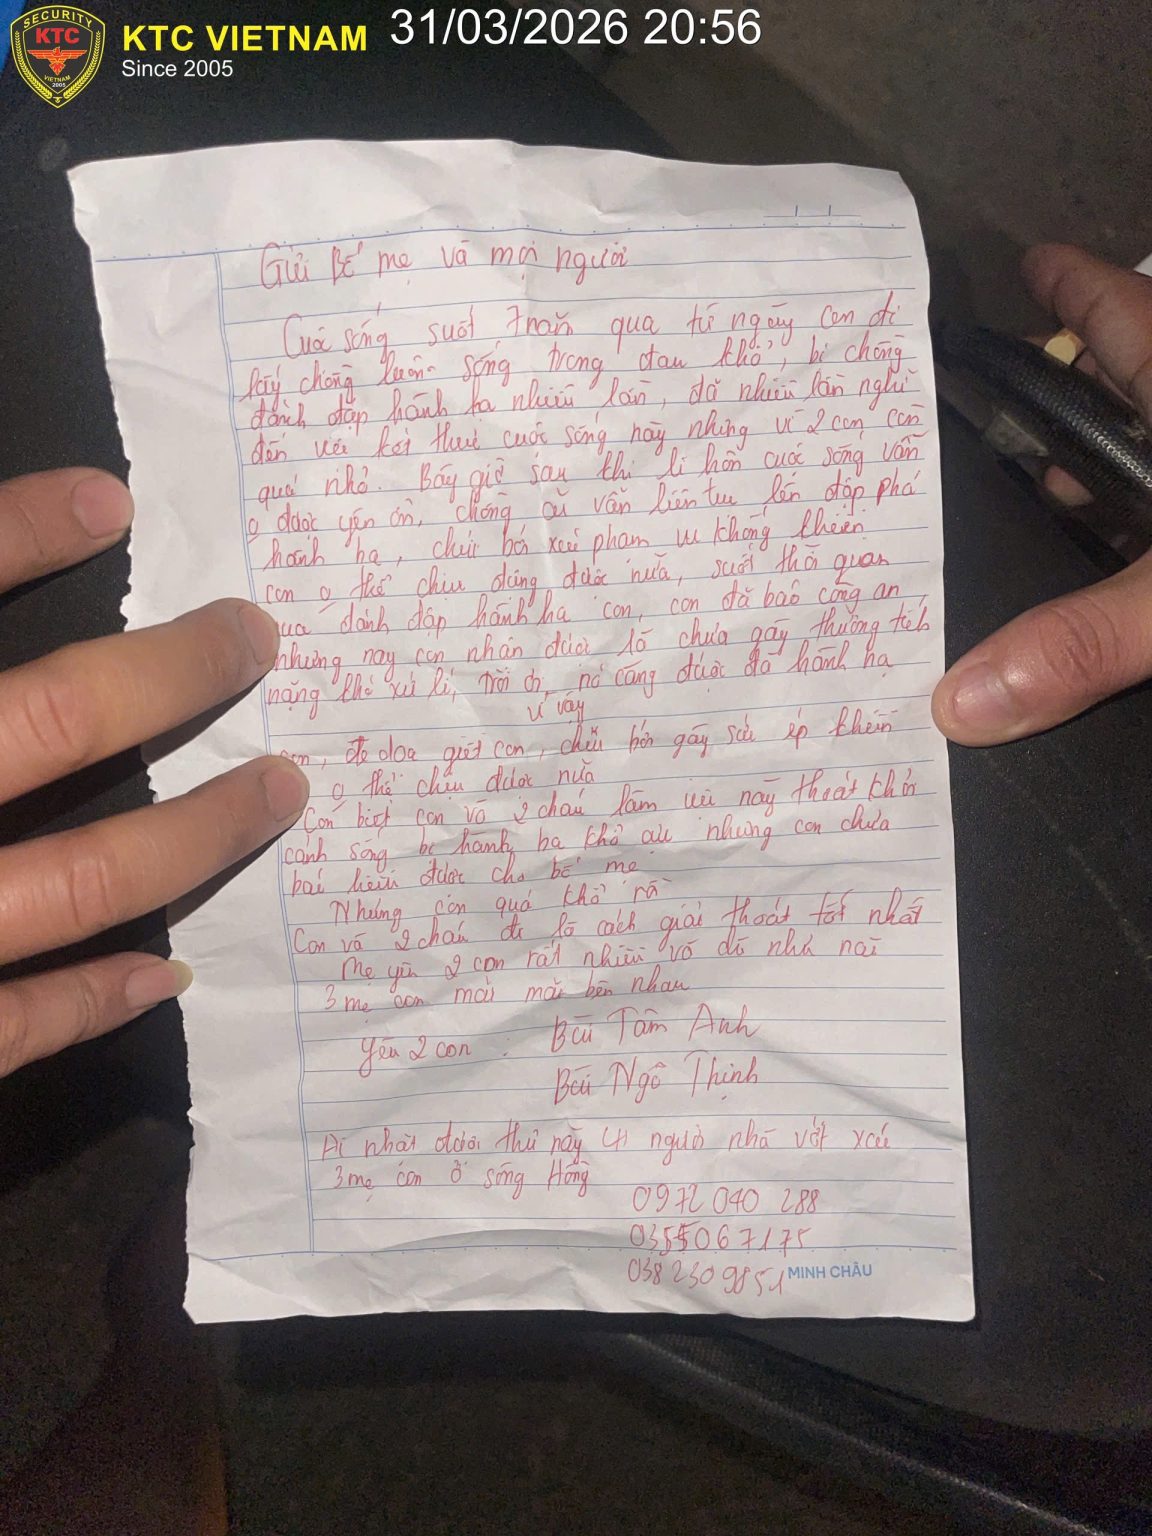 SECURITY
KTC
VIETNAM
2005
KTC VIETNAM
Since 2005
31/03/2026 20:56
Gửi Bố mẹ và mọi người
Cuộc sống suốt 7 năm qua từ ngày con đi
lấy chồng luôn sống trong đau khổ, bị chồng
đánh đập hành hạ nhiều lần, đã nhiều lần nghĩ
đến việc kết thúc cuộc sống này nhưng vì 2 con còn
quá nhỏ. Bây giờ sau khi li hôn cuộc sống vẫn
o được yên ổn, chồng cũ vẫn liên tục lên đập phá
hành hạ, chửi bới xúc phạm vu khống khiến
con o thể chịu đựng được nữa, suốt thời quan
qua đánh đập hành hạ con, con đã báo công an
nhưng nay con nhận được là chưa gây thương tích
nặng khó xử lí, trời ơi, nó càng được đà hành hạ
vì vậy
con, đe doạ giết con, chửi bới gây sức ép khiến
o thể chịu được nữa
Con biết con và 2 cháu làm việc này thoát khỏi
cảnh sống bị hành hạ khổ cực nhưng con chưa
báo hiếu được cho bố mẹ
Nhưng con quá khổ rồi
Con và 2 cháu đi là cách giải thoát tốt nhất
Mẹ yêu 2 con rất nhiều và dù như nào
3 mẹ con mãi mãi bên nhau
Yêu 2 con : Bùi Tâm Anh
Bùi Ngô Thịnh
Ai nhặt được thư này gọi người nhà vớt xác
3 mẹ con ở sông Hồng
0972 040 288
0355067175
038 230 9851
MINH CHÂU